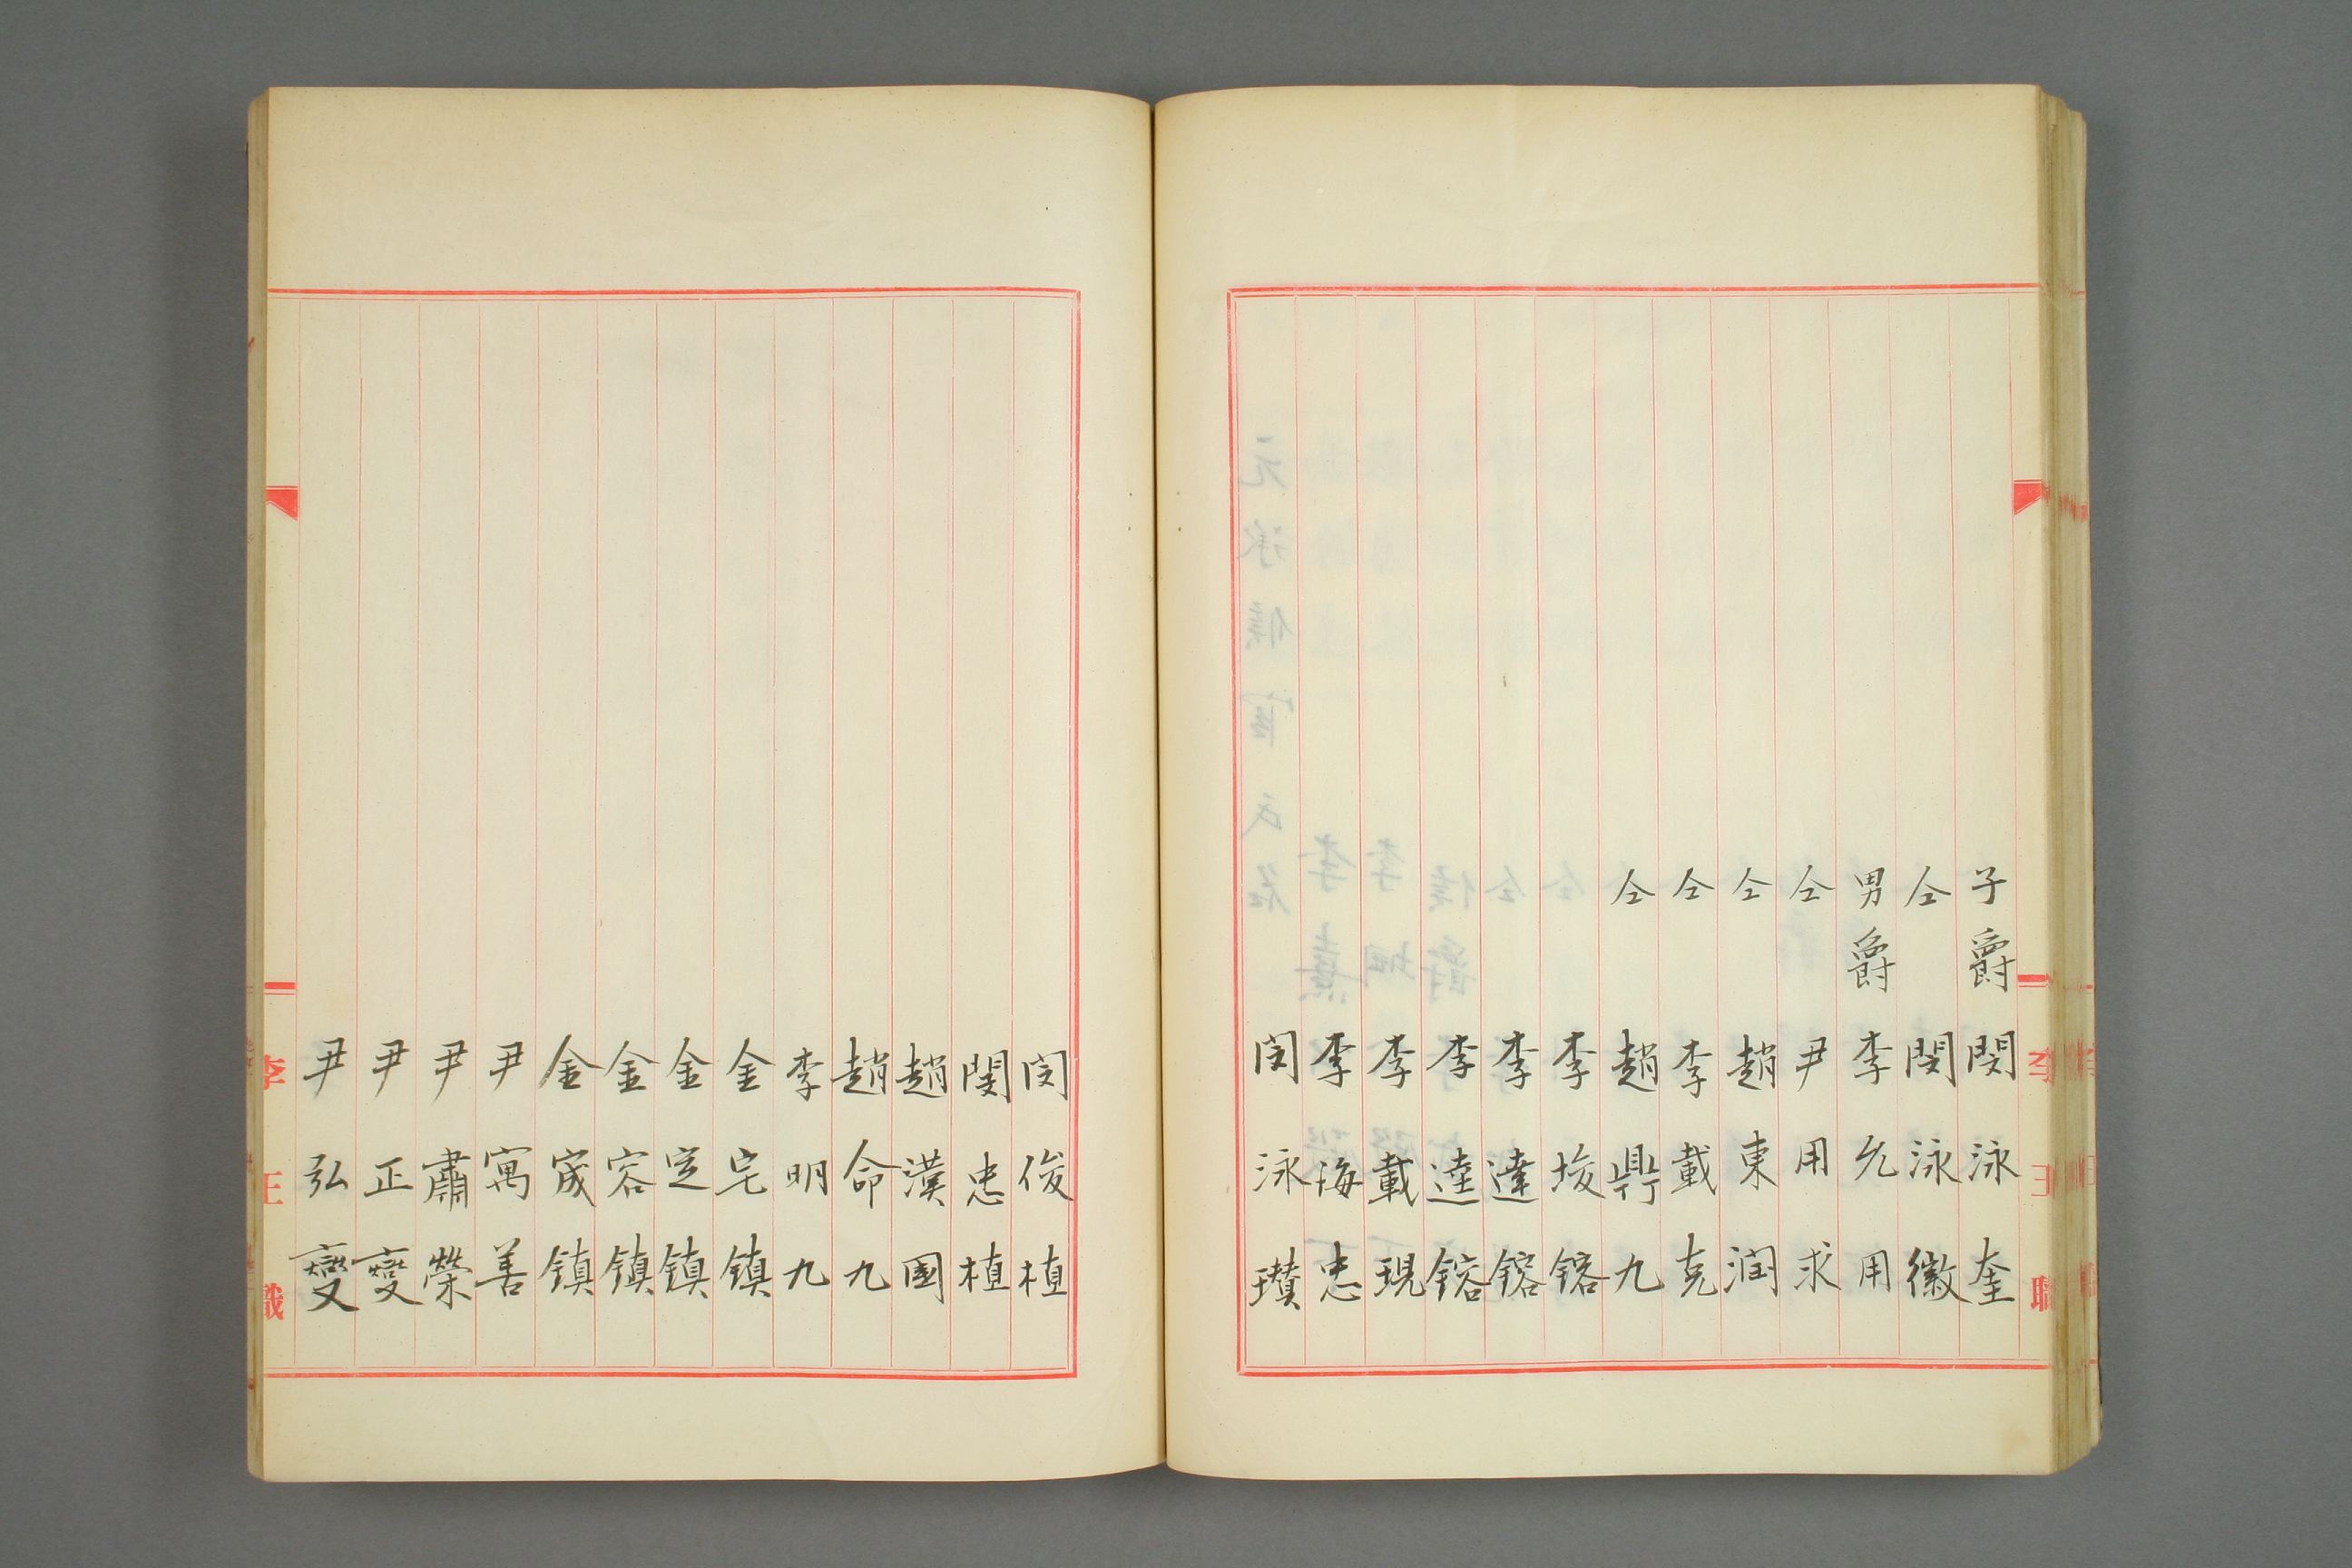 子爵 閔泳奎
仝 閔泳徽
男爵 李允用
仝 尹用求
仝 趙東潤
仝 李載克
仝 趙鼎九
李埈鎔
李達鎔
李達鎔
李載現
李海忠
閔泳瓚
閔俊植
閔忠植
趙漢國
趙命九
李明九
金宅鎮
金定鎮
金容鎮
金宬鎮
尹寓善
尹肅榮
尹正燮
尹弘燮
李王職